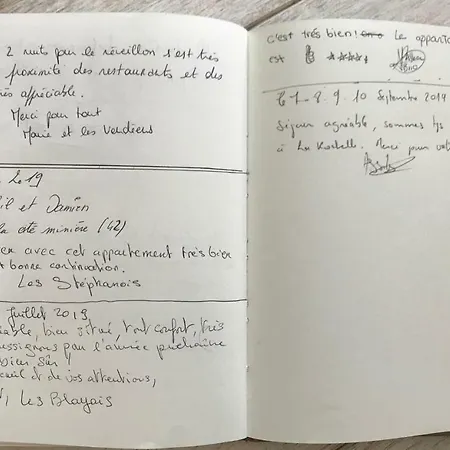 2 nuits pour le réveillon s'est très
proximité des restaurants et des
très appréciable.
Merci pour tout
Marie et les Vendéens
2019
et Damien
la cité minière (42)
avec cet appartement très bien
bonne continuation.
Les Stéphanois
Juillet 2019
bien situé, tout confort, très
pour l'année prochaine
bien sûr!
et de vos attentions,
Les Blayais
c'est très bien! Le apparte
est
le 7. 8. 9. 10 Septembre 2019
Séjour agréable, sommes tjs
à La Rochelle. Merci pour vot